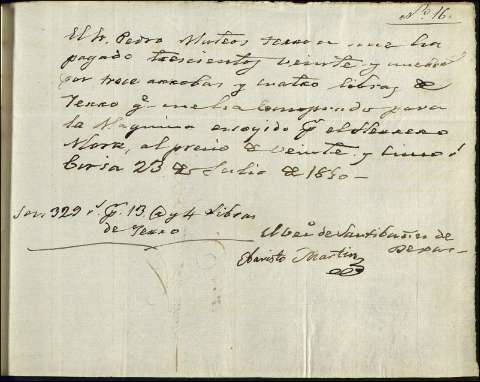 Nº 16.
El Sr. Pedro Mateos me ha
pagado trescientos veinte y nueve
por trece arrobas y cuatro libras de
Ferro q. me ha comprado para
la Maquina p. el Herrero
al precio de veinte y cinco r.
23 de Julio de 1850
Son 329 r. p. 13 @ y 4 Libras
de Ferro
El de Santibañez de
Evaristo Martin